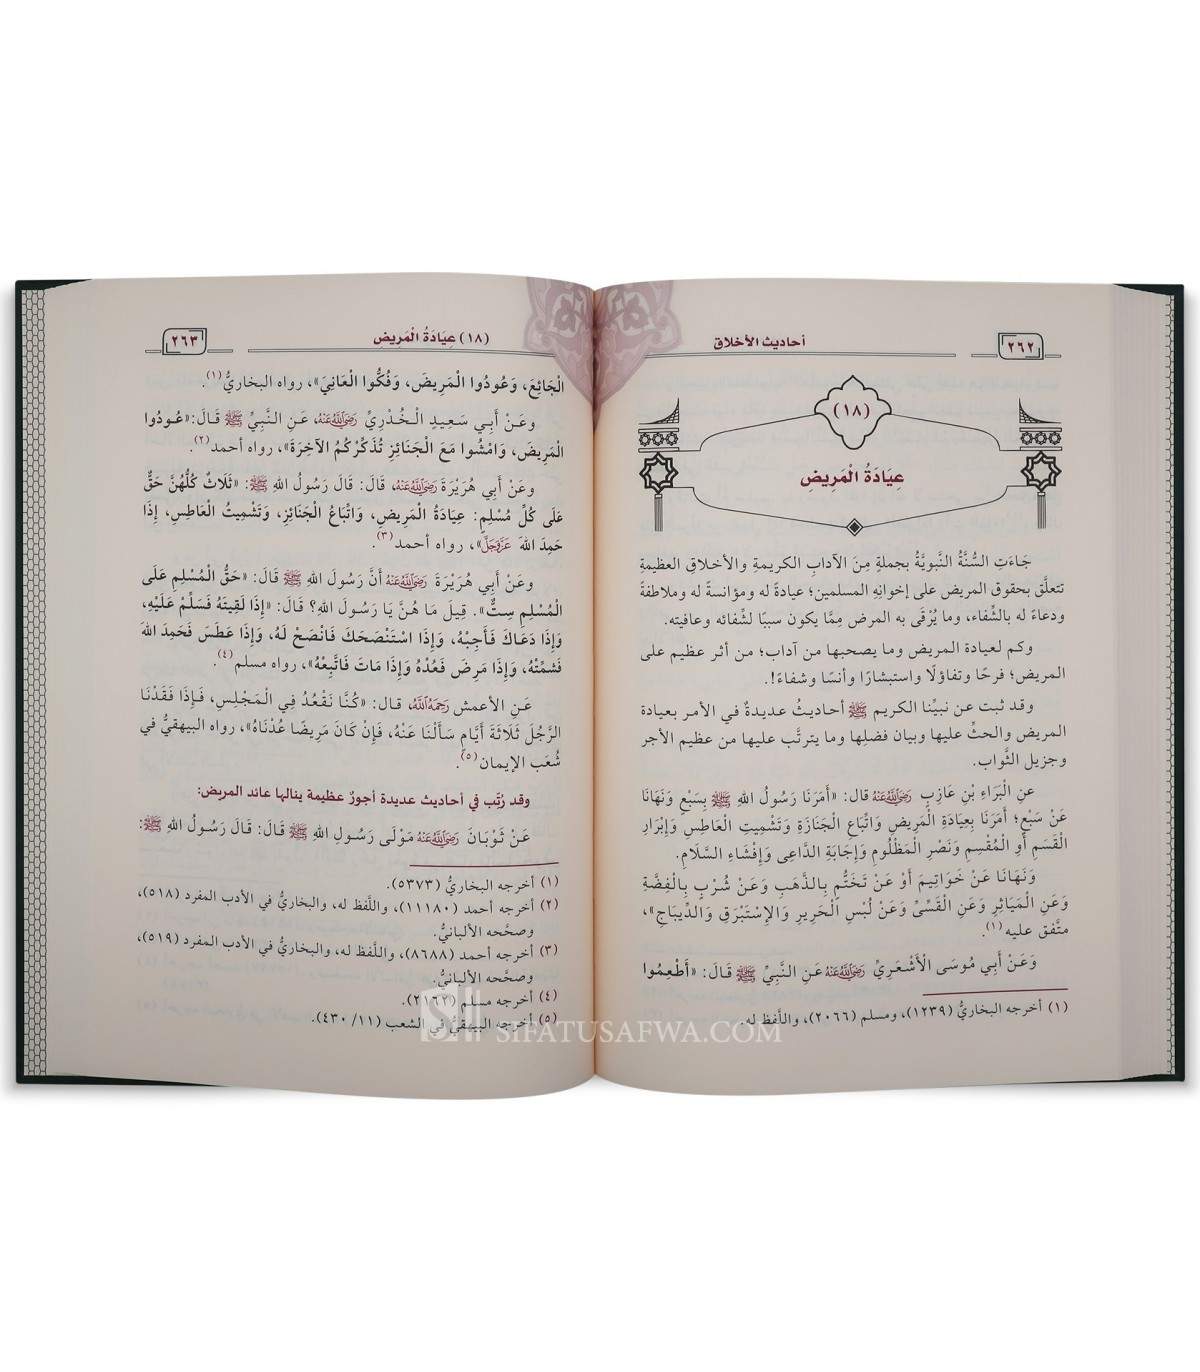 ٢٦٢
أحاديث الأخلاق
(١٨)
عِيَادَةُ الْمَرِيضِ
جَاءَتِ السُّنَّةُ النَّبويَّةُ بجملةٍ مِنَ الآدابِ الكريمةِ والأخلاقِ العظيمةِ
تتعلَّق بحقوق المريض على إخوانِهِ المسلمين؛ عيادةً له ومؤانسةً له وملاطفةً
ودعاءً له بالشِّفاء، وما يُرْقَى به المرض مِمَّا يكون سببًا لشِفائه وعافيته.
وكم لعيادة المريض وما يصحبها من آداب؛ من أثر عظيم على
المريض؛ فرحًا وتفاؤلًا واستبشارًا وأنسًا وشفاءً!.
وقد ثبت عن نبيِّنا الكريم ﷺ أحاديثُ عديدةٌ في الأمر بعيادة
المريض والحثِّ عليها وبيان فضلِها وما يترتَّب عليها من عظيم الأجر
وجزيل الثَّواب.
عنِ الْبَرَاءِ بْنِ عَازِبٍ رَضِيَ اللَّهُ عَنْهُ قال: «أَمَرَنَا رَسُولُ اللهِ ﷺ بِسَبْعٍ وَنَهَانَا
عَنْ سَبْعٍ؛ أَمَرَنَا بِعِيَادَةِ الْمَرِيضِ وَاتِّبَاعِ الْجَنَازَةِ وَتَشْمِيتِ الْعَاطِسِ وَإِبْرَارِ
الْقَسَمِ أَوِ الْمُقْسِمِ وَنَصْرِ الْمَظْلُومِ وَإِجَابَةِ الدَّاعِي وَإِفْشَاءِ السَّلَامِ.
وَنَهَانَا عَنْ خَوَاتِيمَ أَوْ عَنْ تَخَتُّمٍ بِالذَّهَبِ وَعَنْ شُرْبٍ بِالْفِضَّةِ
وَعَنِ الْمَيَاثِرِ وَعَنِ الْقَسِّيِّ وَعَنْ لُبْسِ الْحَرِيرِ وَالإِسْتَبْرَقِ وَالدِّيبَاجِ»،
متَّفق عليه(١).
وَعَنْ أَبِي مُوسَى الْأَشْعَرِيِّ رَضِيَ اللَّهُ عَنْهُ عَنِ النَّبِيِّ ﷺ قَالَ: «أَطْعِمُوا
(١) أخرجه البخاريُّ (١٢٣٩)، ومسلم (٢٠٦٦)، واللَّفظ له.
(١٨) عِيَادَةُ الْمَرِيض
٢٦٣
الْجَائِعَ، وَعُودُوا الْمَرِيضَ، وَفُكُّوا الْعَانِيَ»، رواه البخاريُّ(١).
وعَنْ أَبِي سَعِيدٍ الْخُدْرِيِّ رَضِيَ اللَّهُ عَنْهُ، عَنِ النَّبِيِّ ﷺ قَالَ: «عُودُوا
الْمَرِيضَ، وَامْشُوا مَعَ الْجَنَائِزِ تُذَكِّرْكُمُ الآخِرَةَ»، رواه أحمد(٢).
وعَنْ أَبِي هُرَيْرَةَ رَضِيَ اللَّهُ عَنْهُ، قَالَ: قَالَ رَسُولُ اللهِ ﷺ: «ثَلَاثٌ كُلُّهُنَّ حَقٌّ
عَلَى كُلِّ مُسْلِمٍ: عِيَادَةُ الْمَرِيضِ، وَاتِّبَاعُ الْجَنَائِزِ، وَتَشْمِيتُ الْعَاطِسِ، إِذَا
حَمِدَ اللهَ عَزَّوَجَلَّ»، رواه أحمد(٣).
وعَنْ أَبِي هُرَيْرَةَ رَضِيَ اللَّهُ عَنْهُ أَنَّ رَسُولَ اللهِ ﷺ قَالَ: «حَقُّ الْمُسْلِمِ عَلَى
الْمُسْلِمِ سِتٌّ». قِيلَ مَا هُنَّ يَا رَسُولَ اللهِ؟ قَالَ: «إِذَا لَقِيتَهُ فَسَلِّمْ عَلَيْهِ،
وَإِذَا دَعَاكَ فَأَجِبْهُ، وَإِذَا اسْتَنْصَحَكَ فَانْصَحْ لَهُ، وَإِذَا عَطَسَ فَحَمِدَ اللهَ
فَسَمِّتْهُ، وَإِذَا مَرِضَ فَعُدْهُ وَإِذَا مَاتَ فَاتَّبِعْهُ»، رواه مسلم(٤).
عَنِ الأعمش رَحِمَهُ اللَّهُ، قال: «كُنَّا نَقْعُدُ فِي الْمَجْلِسِ، فَإِذَا فَقَدْنَا
الرَّجُلَ ثَلَاثَةَ أَيَّامٍ سَأَلْنَا عَنْهُ، فَإِنْ كَانَ مَرِيضًا عُدْنَاهُ»، رواه البيهقيُّ في
شُعَب الإيمان(٥).
وقد رُتِّب في أحاديث عديدة أجورٌ عظيمة ينالها عائد المريض:
عَنْ ثَوْبَانَ رَضِيَ اللَّهُ عَنْهُ مَوْلَى رَسُولِ اللهِ ﷺ قَالَ: قَالَ رَسُولُ اللهِ ﷺ:
(١) أخرجه البخاريُّ (٥٣٧٣).
(٢) أخرجه أحمد (١١١٨٠)، واللَّفظ له، والبخاريُّ في الأدب المفرد (٥١٨)،
وصحَّحه الألبانيُّ.
(٣) أخرجه أحمد (٨٦٨٨)، واللَّفظ له، والبخاريُّ في الأدب المفرد (٥١٩)،
وصحَّحه الألبانيُّ.
(٤) أخرجه مسلم (٢١٦٢).
(٥) أخرجه البيهقيُّ في الشعب (١١/ ٤٣٠).
SIFATUSAFWA.COM